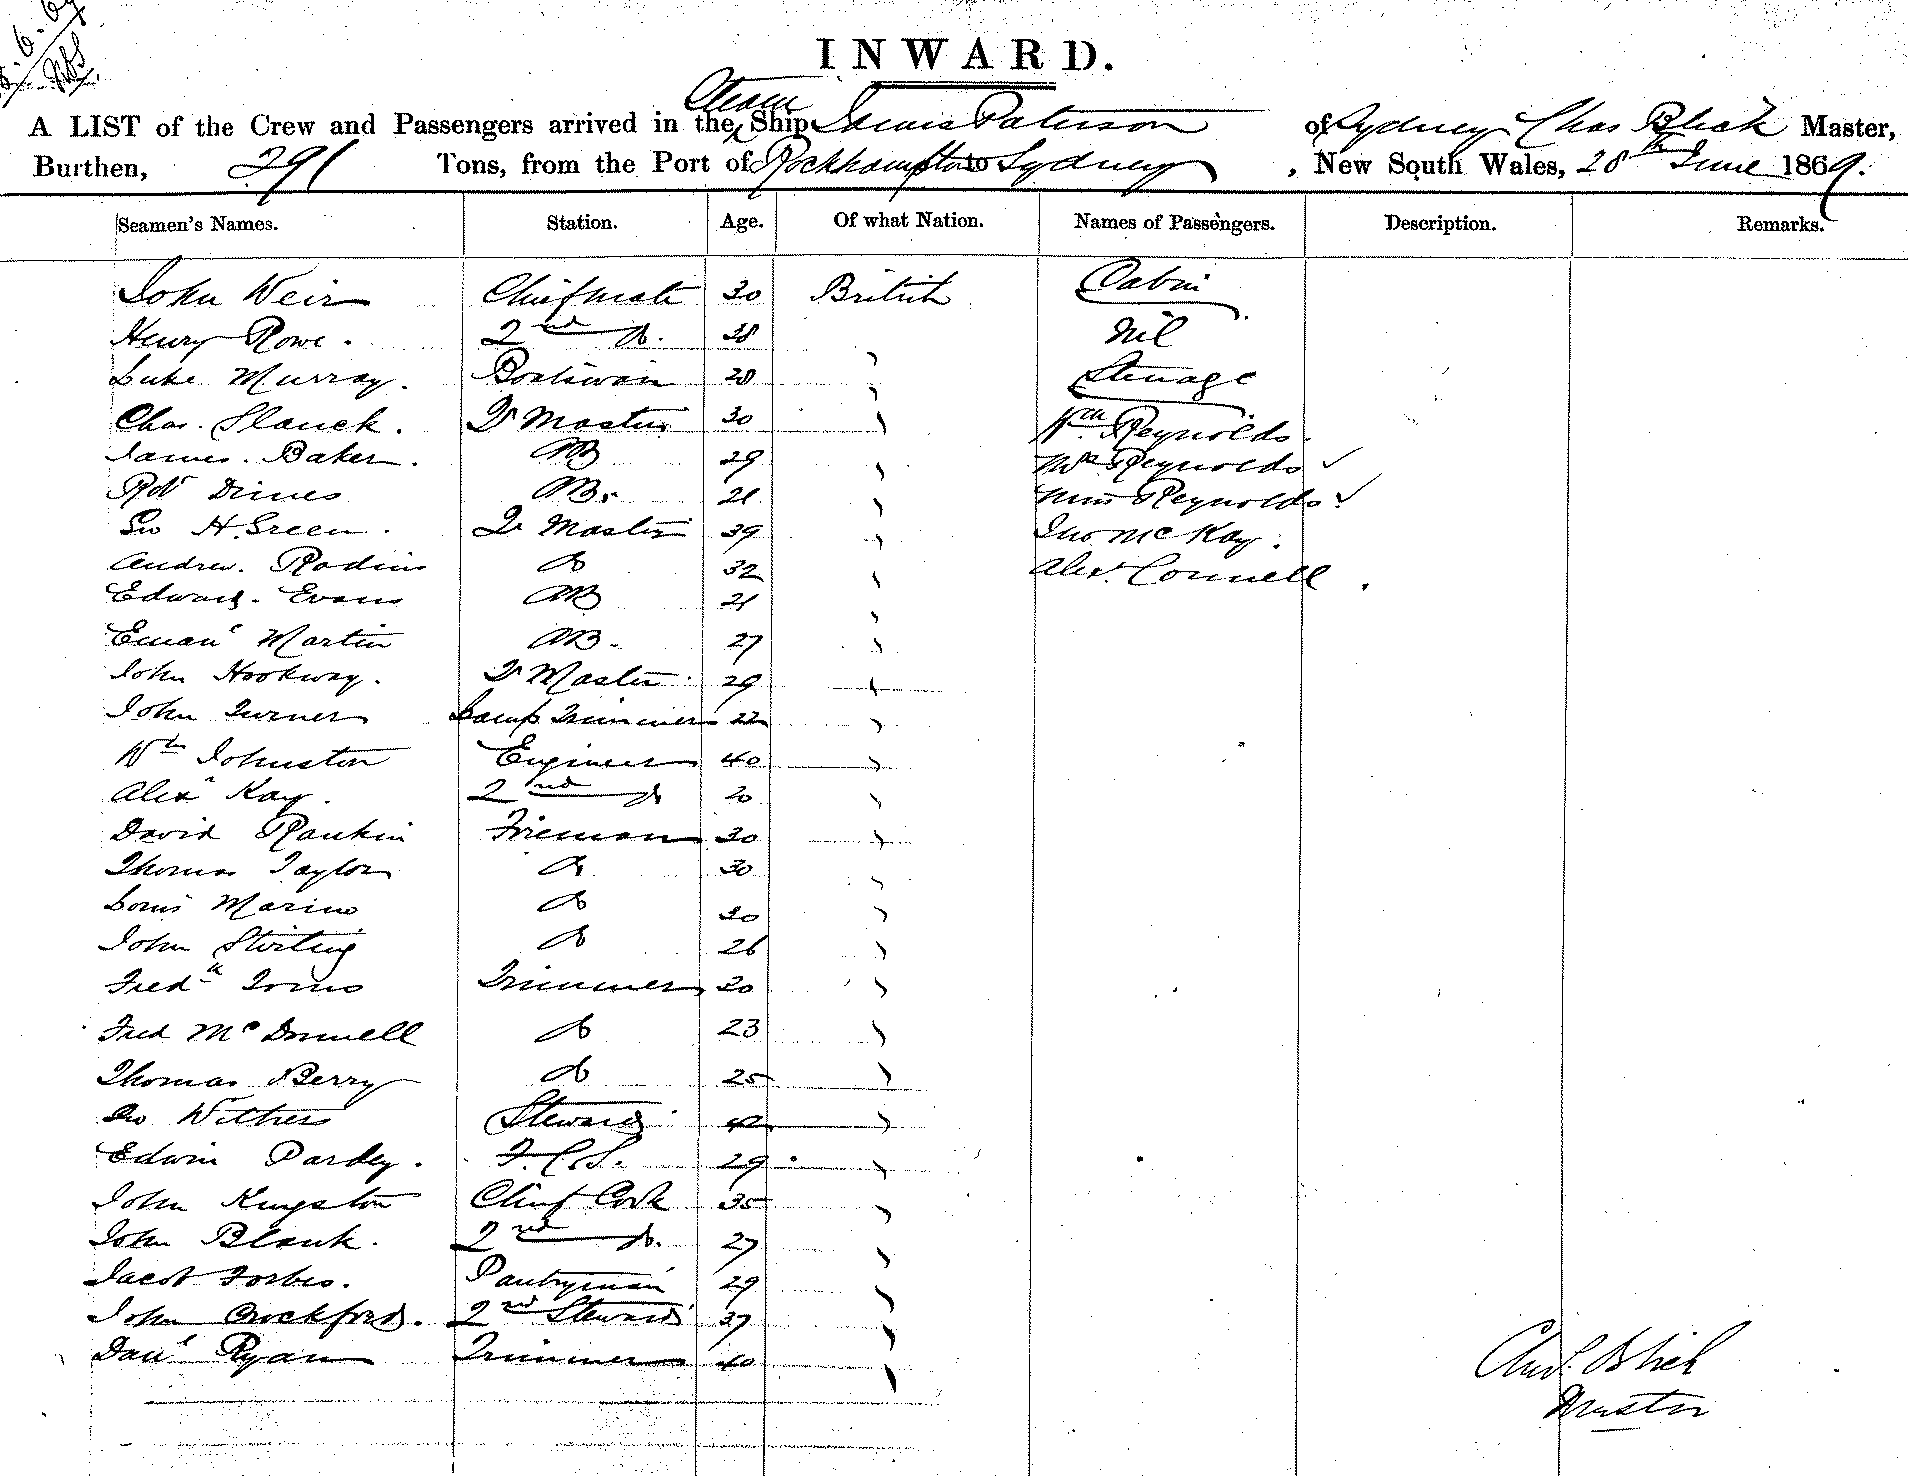 8.6.69
INWARD.
Steam
A LIST of the Crew and Passengers arrived in the Ship James Paterson of Sydney Chas Black Master,
Burthen, 291 Tons, from the Port of Rockhampton to Sydney, New South Wales, 28th June 1869.
Seamen's Names. Station. Age. Of what Nation. Names of Passengers. Description. Remarks.
John Weir Chief mate 30 British Cabin
Henry Rowe. 2nd Do. 28 Nil
Luke Murray. Boatswain 28 " Steerage
Chas. Slauck. Qr Master 30 " Wm Reynolds.
James. Baker. AB 29 " Mrs Reynolds ✓
Robt Dines AB. 21 " Miss Reynolds ✓
Geo H. Green. Qr Master 39 " Thos McKay.
Andrew. Rodins Do 32 " Alexr Connell.
Edward. Evans AB 21 "
Emanl Martin AB. 27 "
John Hookway. Qr Master. 29 "
John Turner Lamp Trimmer 22 "
Wm Johnston Engineer 40 "
Alexr Kay. 2nd Do 20 "
David Rankin Fireman 30 "
Thomas Taylor Do 30 "
Louis Marino Do 30 "
John Stirling Do 26 "
Fredk Toms Trimmer 20 "
Fred McDonnell Do 23 "
Thomas Berry Do 25 "
Geo Withers Steward 42 "
Edwin Pardey. F.C.S. 29 "
John Kingston Chief Cook 35 "
John Blank. 2nd Do. 27 "
Jacob Forbes. Pantryman 29 "
John Crockford. 2nd Steward 37 "
Danl Ryan Trimmer 40 "
Chas. Black
Master